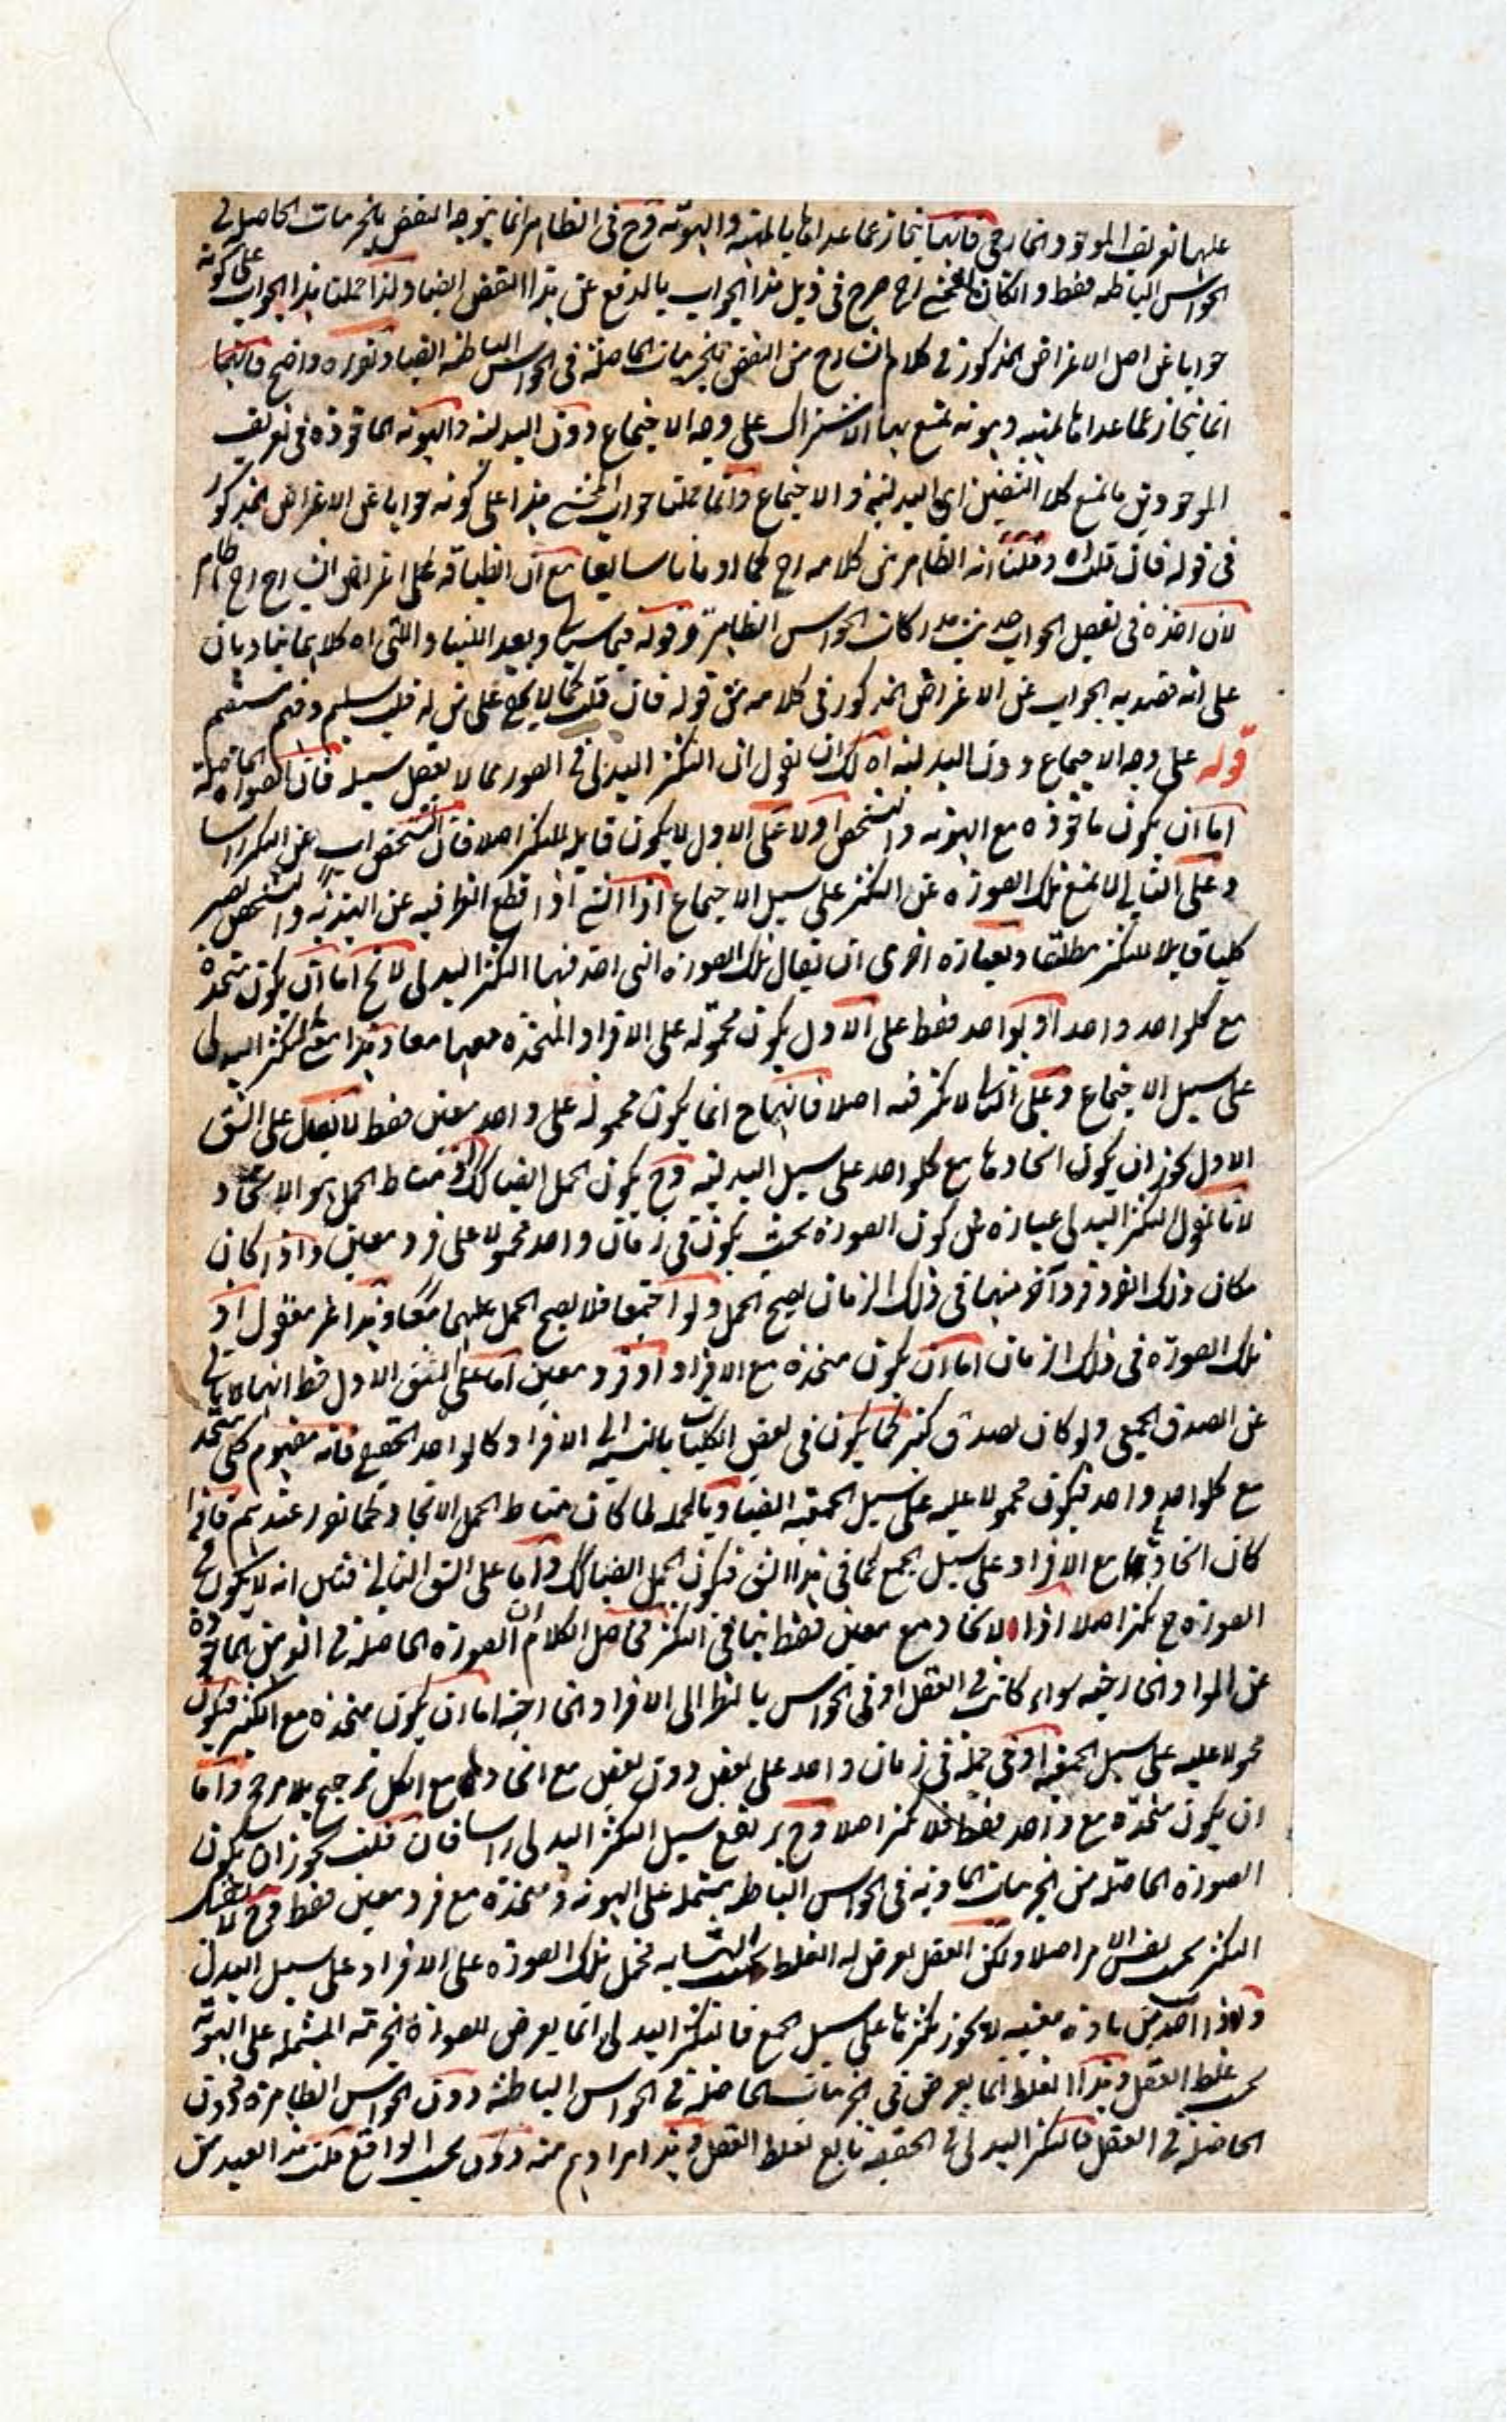 عليها تعريف الموجود الخارجي فانها تنحاز عما عداها بالمهية والهوية وح في الظاهر انما يتوجه النقض بالجزئيات الحاصلة في
الحواس الباطنة فقط و المحشي رح صرح في ذيل هذا الجواب بالدفع عن هذا النقض ايضا ولذا حملنا هذا الجواب على كونه
جوابا عن اصل الاعتراض المذكور في كلام الشارح من النقض بالجزئيات الحاصلة في الحواس الباطنة ايضا وتقريره واضح فانها
انما تنحاز عما عداها بمهية وهوية تمنع بها الاشتراك على وجه الاجتماع دون البدلية والهوية الماخوذة في تعريف
الموجود ين ما تمنع كلا النقيضين اي البدلية و الاجتماع وانما حملنا جواب المحشي هذا على كونه جوابا عن الاعتراض المذكور
في قوله فان قلت اه وقلنا انه الظاهر من كلامه رح كما اومانا سابقا مع ان انطباقه على اعتراض الشارح رح ظاهر
لان اخذه في تفصيل الجواب حديث مدركات الحواس الظاهرة وقوله فيما سياتي وبعد اللتيا والتي اه كلاهما يناديان
على انه قصد به الجواب عن الاعتراض المذكور في كلامه من قوله فان قلت كما لا يخفى على من له قلب سليم وفهم مستقيم
قوله على وجه الاجتماع دون البدلية اه لك ان تقول ان التكثر البدلي في الصور مما لا يعقل سبيله فان الصورة الحاصلة
اما ان يكون ماخوذة مع الهوية و التشخص اولا على الاول لا يكون قابلة للتكثر اصلا فان التشخص اب عن التكثر راسا
وعلى الثاني لا تمنع تلك الصورة عن التكثر على سبيل الاجتماع اذ الشئ اذا قطع النظر فيه عن الهذية و التشخص يصير
كليا قابلا للتكثر مطلقا وبعبارة اخرى ان يقال تلك الصورة التي اخذ فيها التكثر البدلي لا يخ اما ان يكون متحدة
مع كلواحد واحد او بواحد فقط على الاول يكون محمولة على الافراد المتحدة معها معا وهذا التكثر البدلي
على سبيل الاجتماع وعلى الثاني لا تكثر فيه اصلا فانها ح انما يكون محمولة على واحد معين فقط لا يقال على الشق
الاول يجوز ان يكون اتحادها مع كلواحد على سبيل البدلية وح يكون الحمل ايضا كذلك اذ مناط الحمل هو الاتحاد
لانا نقول التكثر البدلي عبارة من كون الصورة بحيث يكون في زمان واحد محمولا على فرد معين واذا كان
مكان ذلك الفرد فرد آخر منها في ذلك الزمان يصح الحمل ولو اجتمعا فلا يصح الحمل عليهما معا وهذا غير معقول اذ
تلك الصورة في ذلك الزمان اما ان يكون متحدة مع الافراد او فرد معين اما على الشق الاول فظ انها لا تابى
عن الصدق الجمعي ولو كان بصدق كثير كما يكون في بعض الكليات بالنسبة الى الافراد كالواحد الحقيقي فانه مفهوم كلي متحد
مع كلواحد واحد فيكون محمولا عليه على سبيل الجمعية ايضا وبالجملة لما كان مناط الحمل الاتحاد كما تقرر عندهم فاذا
كان اتحادها مع الافراد على سبيل الجمع كما في هذا الشق فيكون الحمل ايضا كذلك واما على الشق الثاني فتامل انه لا يكون في
الصورة ح تكثر اصلا اذ الاتحاد مع معين فقط ينافي التكثر فحاصل الكلام ان الصورة الحاصلة في الذهن الماخوذة
عن المواد الخارجية سواء كانت في العقل او في الحواس بالنظر الى الافراد الخارجية اما ان يكون متحدة مع الكثير فيكون
محمولا عليه على سبيل الجمعية اذ في حمله في زمان واحد على بعض دون بعض مع اتحادها مع الكل ترجيح بلا مرجح واما
ان يكون متحدة مع واحد فقط فلا تكثر اصلا وح يرتفع سبيل التكثر البدلي راسا فان قلت يجوز ان يكون
الصورة الحاصلة من الجزئيات المادية في الحواس الباطنة مشتملة على الهوية ومتحدة مع فرد معين فقط وح لا يعقل
التكثر بحسب نفس الامر اصلا ولكن العقل يعرض له الغلط بحسب التشابه فيحمل تلك الصورة على الافراد على سبيل البدل
ولذا من مادة معينة لا يجوز تكثرها على سبيل الجمع فالتكثر البدلي انما يعرض للصورة الجزئية المشتملة على الهوية
بحسب غلط العقل وهذا الغلط انما يعرض في الجزئيات الحاصلة في الحواس الباطنة دون الحواس الظاهرة ودون
الحاصلة في العقل فالتكثر البدلي في الحقيقة تابع لغلط العقل وهذا مرادهم منه دون بحسب الواقع قلت هذا العبد من